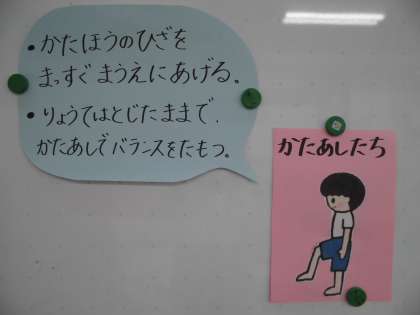 ・かたほうのひざを
まっすぐまうえにあげる。
・りょうてはとじたままで、
かたあしでバランスをたもつ。
かたあしたち